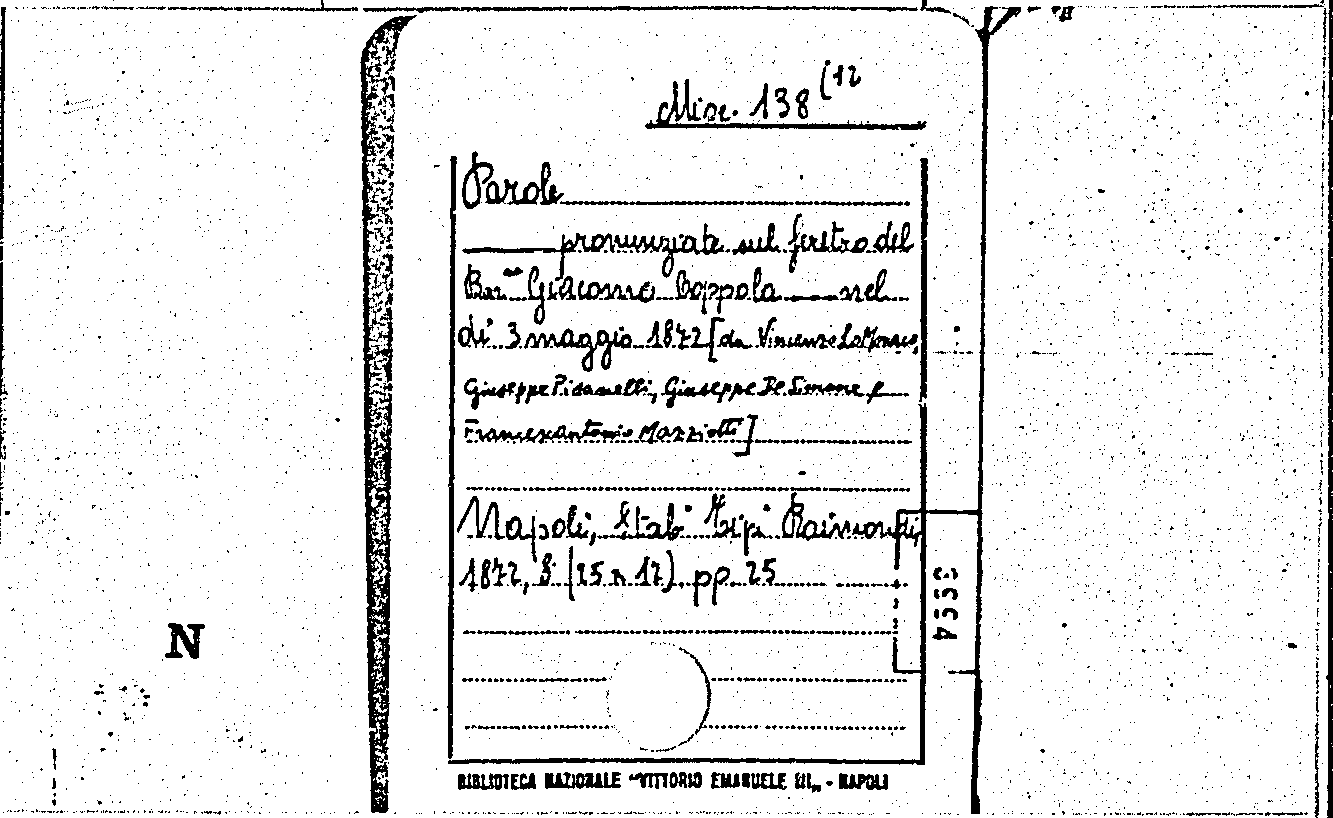 Misc. 138 (12
Parole
pronunziate sul feretro del
Bar.ne Giacomo Coppola nel
dì 3 maggio 1872 [da Vincenzo Lo Monaco,
Giuseppe Pisanelli, Giuseppe De Simone e
Francescantonio Mazziotti]
Napoli, Stab° Tip° Raimondi,
1872, 8° (25 x 17) pp. 25
3554
N
BIBLIOTECA NAZIONALE "VITTORIO EMANUELE III„ - NAPOLI